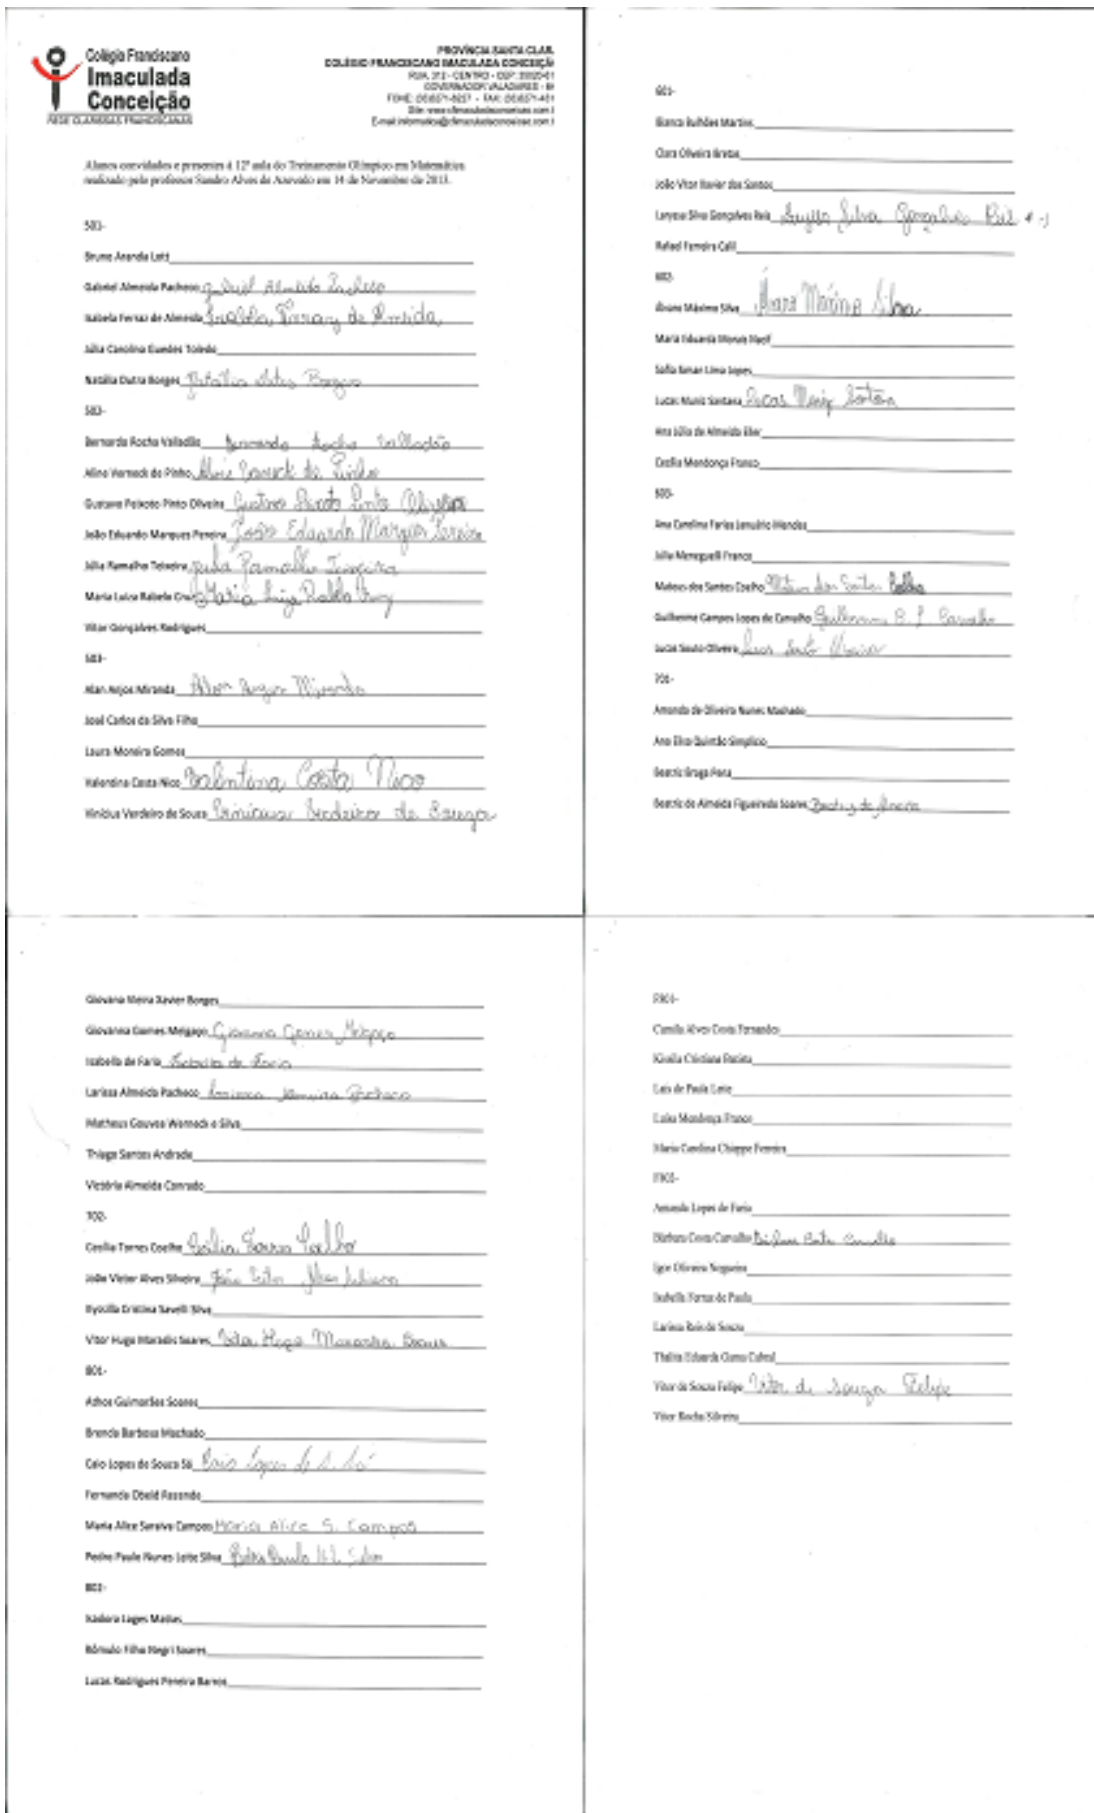 Colégio Franciscano
Imaculada
Conceição
REDE CLARISSAS FRANCISCANAS
PROVÍNCIA SANTA CLAR
COLÉGIO FRANCISCANO IMACULADA CONCEIÇÃ
GOVERNADOR VALADARES -
Alunos convidados e presentes à 12ª aula do Treinamento Olímpico em Matemática
realizado pelo professor Sandro Alves de Azevedo em 14 de Novembro de 2013.
501-
Bruno Aranda Lott
Gabriel Almeida Pacheco Gabriel Almeida Pacheco
Isabela Ferraz de Almeida Isabela Ferraz de Almeida
Júlia Carolina Guedes Toledo
Natália Dutra Borges Natália Dutra Borges
502-
Bernardo Rocha Valladão Bernardo Rocha Valladão
Aline Werneck de Pinho Aline Werneck de Pinho
Gustavo Peixoto Pinto Oliveira Gustavo Peixoto Pinto Oliveira
João Eduardo Marques Pereira João Eduardo Marques Pereira
Júlia Ramalho Teixeira Julia Ramalho Teixeira
Maria Luiza Rabelo Cruz Maria Luiza Rabelo Cruz
Vitor Gonçalves Rodrigues
503-
Alan Anjos Miranda Alan Anjos Miranda
José Carlos da Silva Filho
Laura Moreira Gomes
Valentina Costa Nico Valentina Costa Nico
Vinícius Verdeiro de Souza Vinicius Verdeiro de Souza
601-
Bianca Bulhões Martins
Clara Oliveira Bretas
João Vitor Xavier dos Santos
Laryssa Silva Gonçalves Reis Laryssa Silva Gonçalves Reis
Rafael Ferreira Calil
602-
Álvaro Máximo Silva Álvaro Máximo Silva
Maria Eduarda Morais Nacif
Sofia Lima Lopes
Lucas Muniz Santana Lucas Muniz Santana
Ana Júlia de Almeida Eller
Cecília Mendonça Franco
603-
Ana Carolina Farias Januário Mendes
Júlia Meneguelli Franco
Mateus dos Santos Coelho Mateus dos Santos Coelho
Guilherme Campos Lopes de Carvalho Guilherme C. L. Carvalho
Lucas Souto Oliveira Lucas Souto Oliveira
701-
Amanda de Oliveira Nunes Machado
Ana Elisa Quintão Simplício
Beatriz Braga Pena
Beatriz de Almeida Figueiredo Soares Beatriz de Almeida
Giovana Vieira Xavier Borges
Giovanna Gomes Melgaço Giovanna Gomes Melgaço
Isabella de Faria Isabella de Faria
Larissa Almeida Pacheco Larissa Almeida Pacheco
Matheus Gouvea Werneck e Silva
Thiago Santos Andrade
Victória Almeida Conrado
702-
Cecília Torres Coelho Cecília Torres Coelho
João Victor Alves Silveira João Victor Alves Silveira
Cristina Savelli Silva
Vitor Hugo Soares Vitor Hugo Soares
801-
Athos Guimarães Soares
Brenda Barbosa Machado
Caio Lopes de Souza Sá Caio Lopes de S. Sá
Fernanda Obeid Resende
Maria Alice Saraiva Campos Maria Alice S. Campos
Pedro Paulo Nunes Leite Silva Pedro Paulo N.L. Silva
802-
Isadora Lages Matias
Rômulo Filho Negri Soares
Lucas Rodrigues Pereira Barros
F901-
Camila Alves Costa Fernandes
Cristiane Batista
Lais de Paula Leite
Luiza Mendonça Franco
Maria Carolina Chiappe Ferreira
F902-
Amanda Lopes de Faria
Bárbara Costa Carvalho Bárbara Costa Carvalho
Igor Oliveira Nogueira
Isabella Ferraz de Paula
Larissa Reis de Souza
Thalita Eduarda Gama Cabral
Vitor de Souza Felipe Vitor de Souza Felipe
Vitor Rocha Silveira